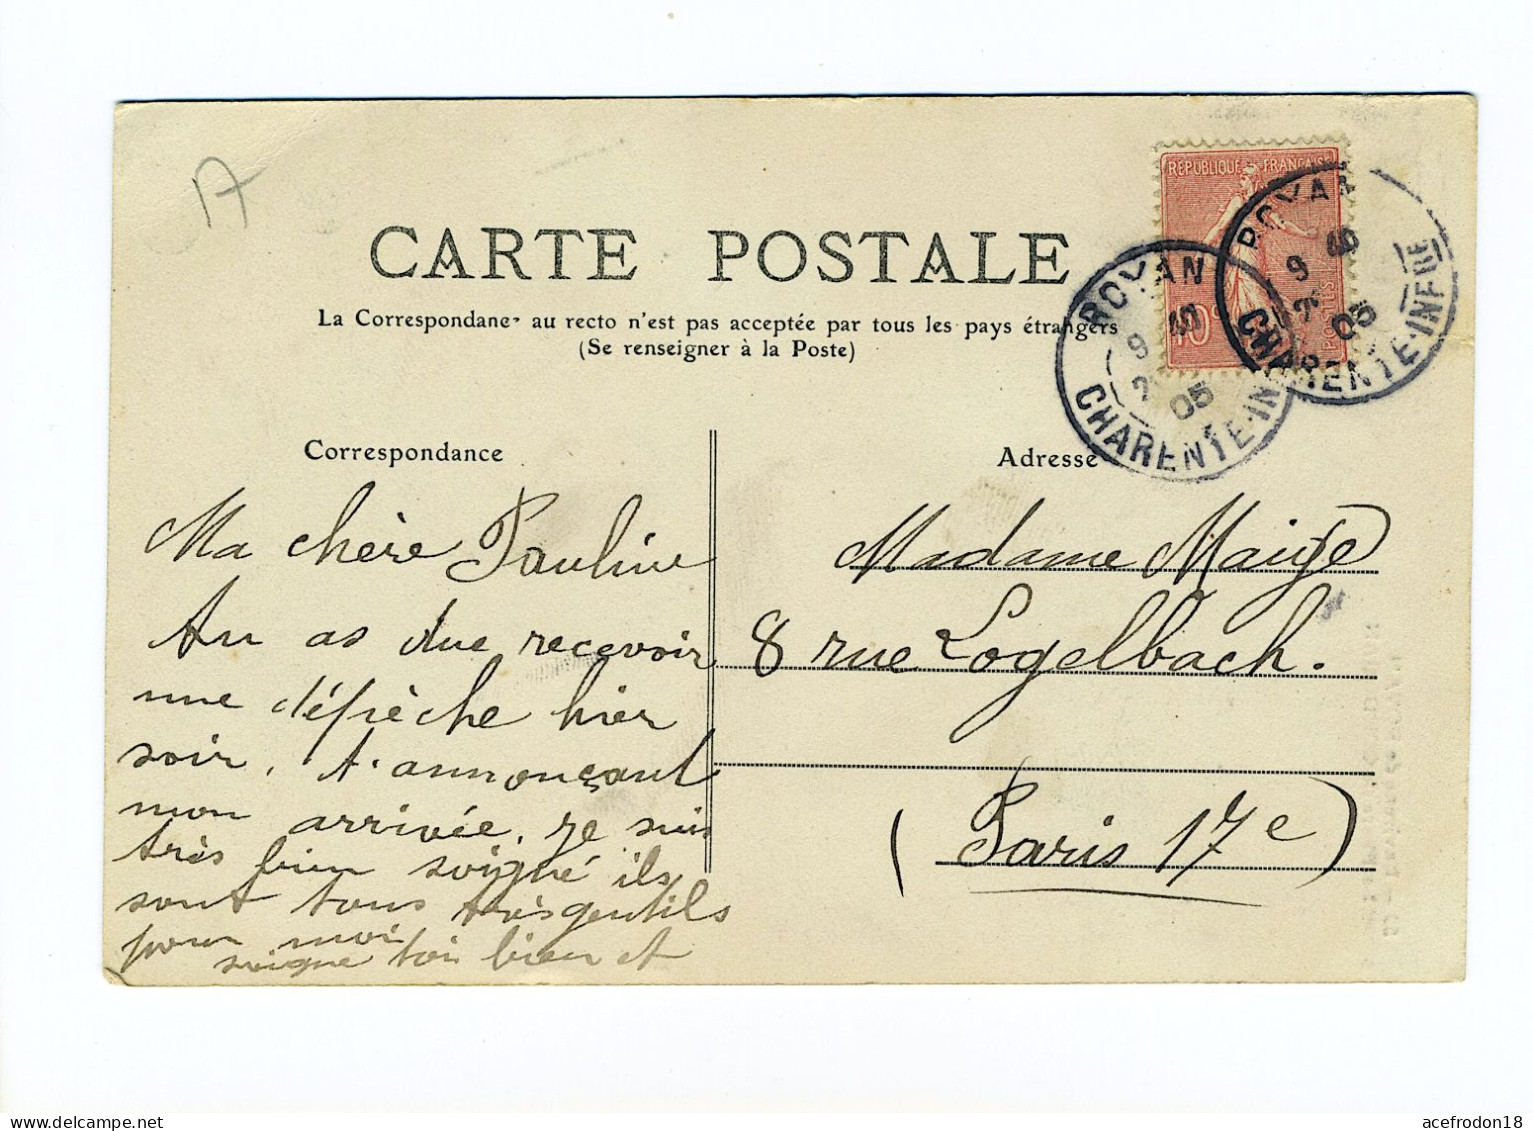 17
CARTE POSTALE
La Correspondance au recto n'est pas acceptée par tous les pays étrangers
(Se renseigner à la Poste)
RÉPUBLIQUE FRANÇAISE
10c
POSTES
ROYAN
9 S
05
CHARENTE-INFRE
ROYAN
9 S
05
CHARENTE-IN
Correspondance
Ma chère Pauline
tu as due recevoir
une dépèche hier
soir, t'annonçant
mon arrivée, je suis
très bien soigné ils
sont tous très gentils
pour moi
soigne toi bien et
Adresse
Madame Maige
8 rue Logelbach.
(Paris 17e)
acefrodon18